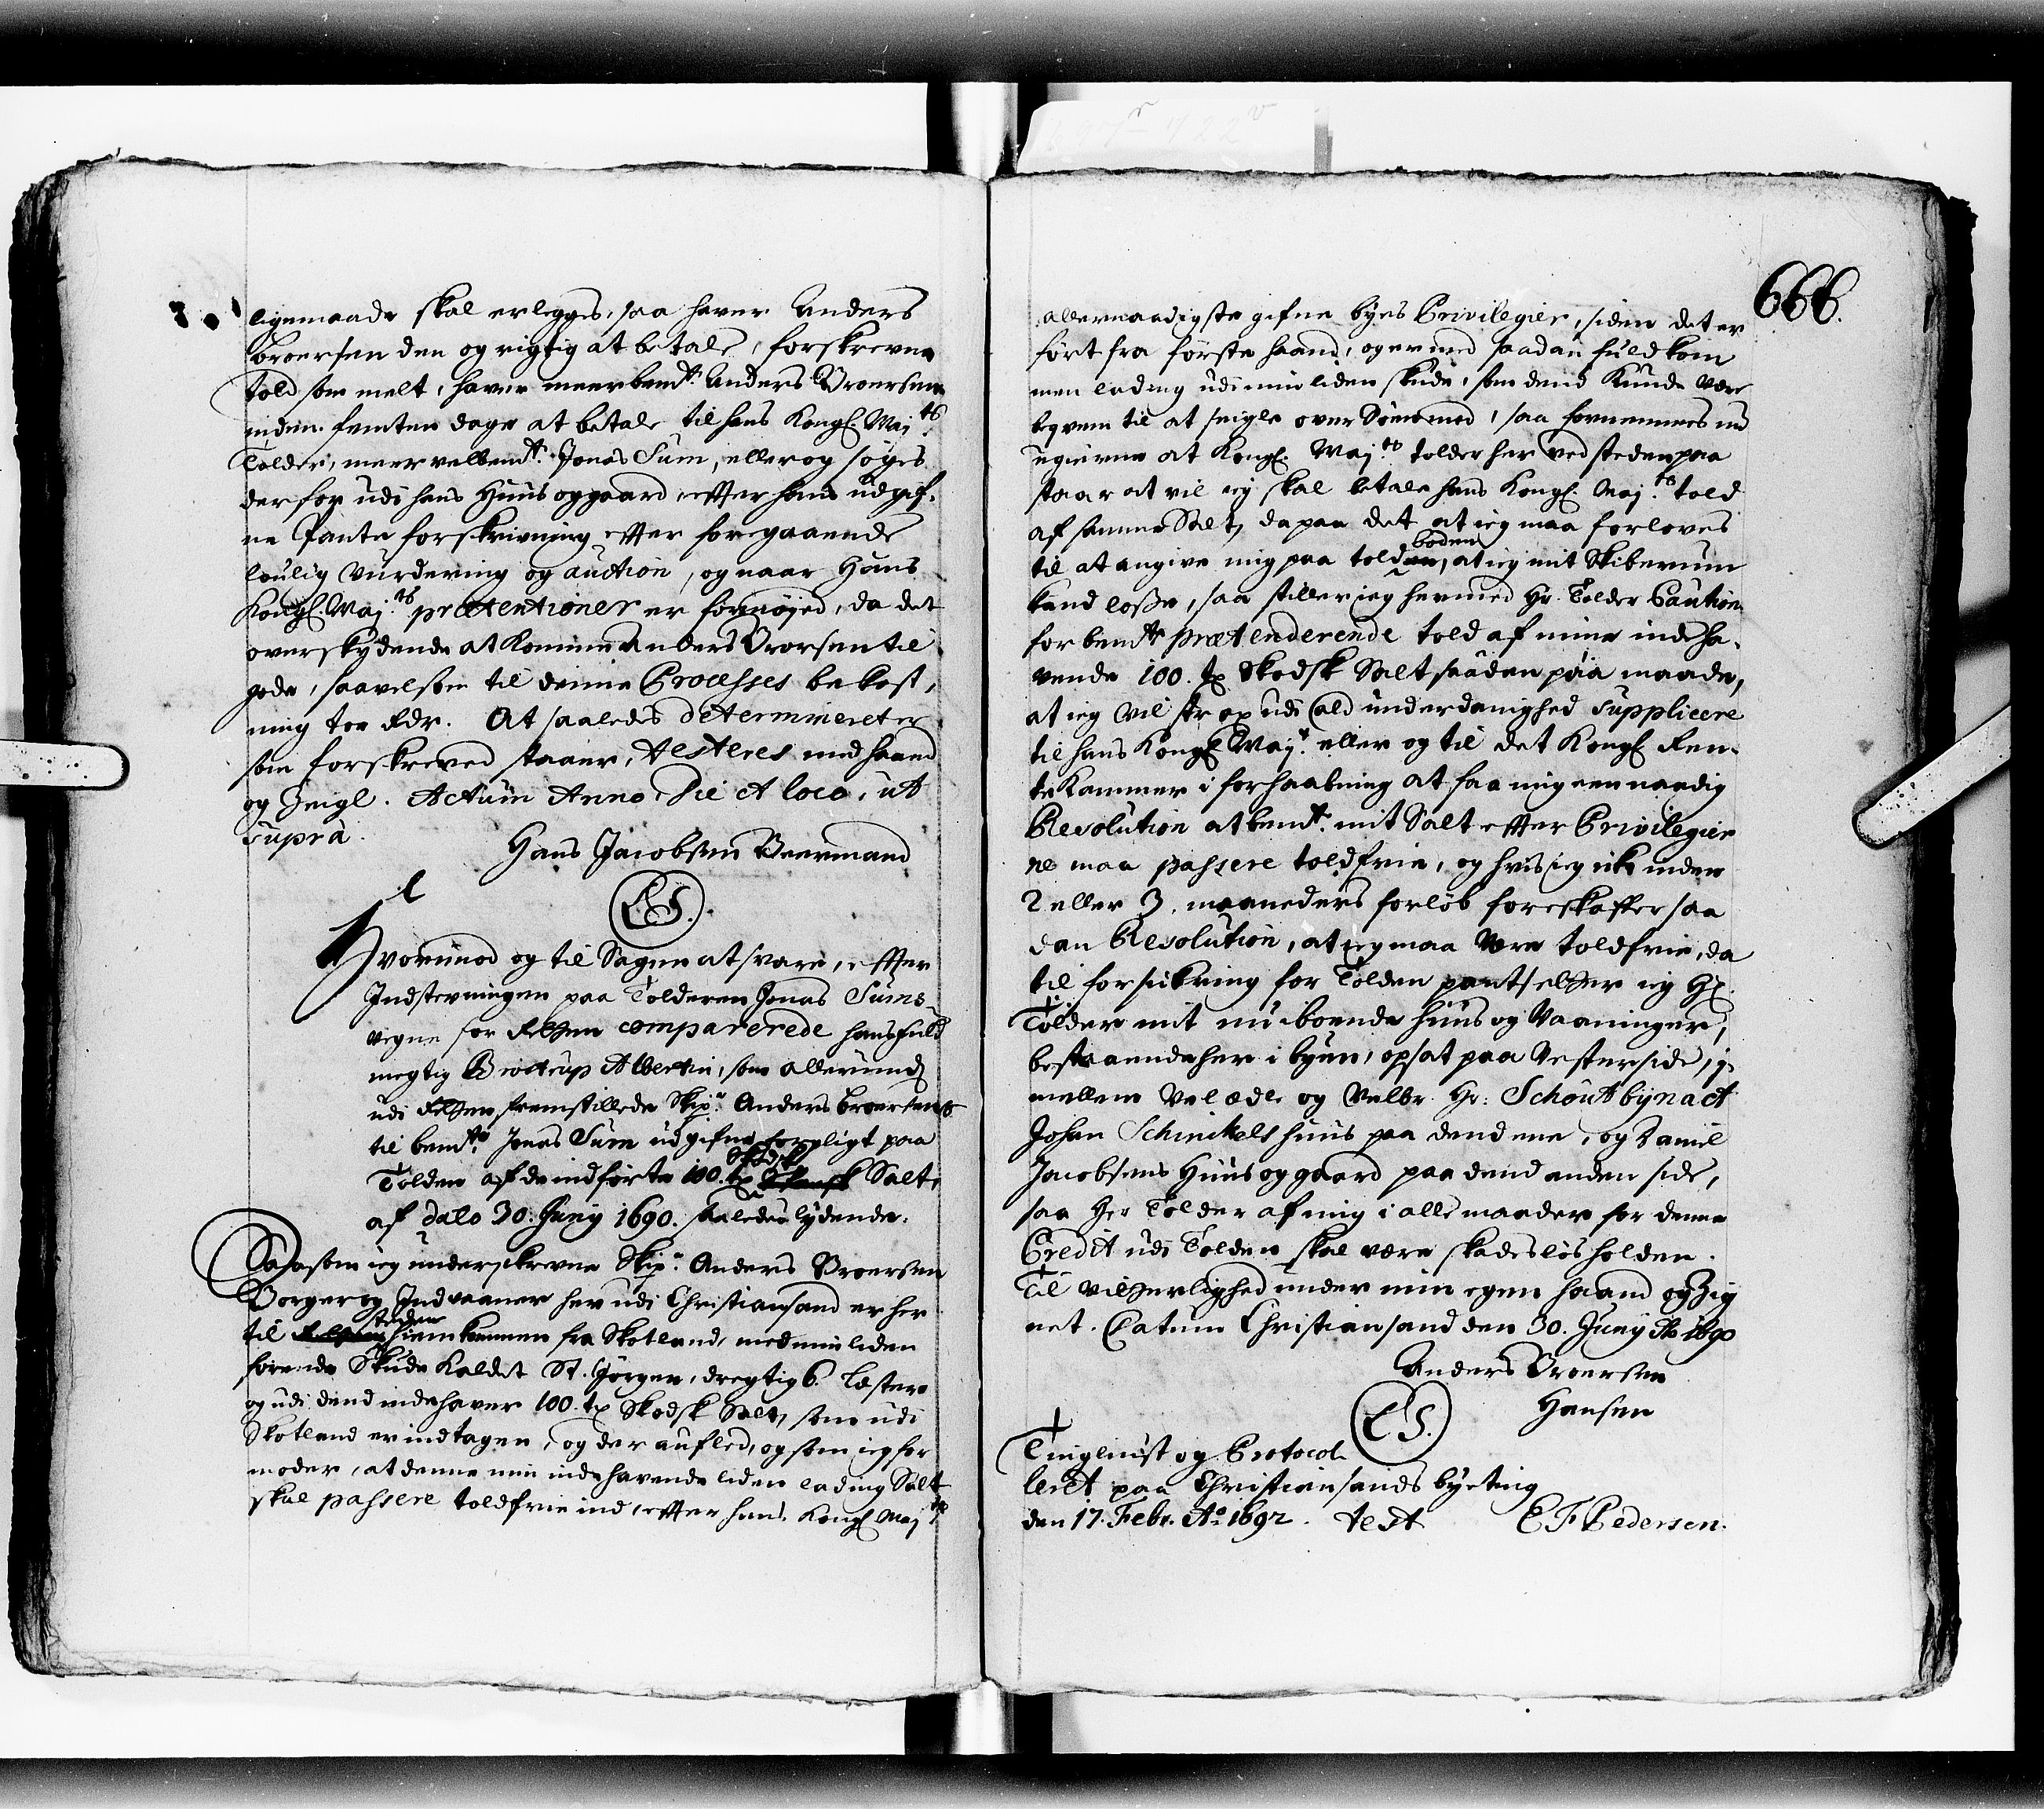 ligemaade skal erlegges, saa haver Anders
Broersen den og rigtig at betale, forskrevne
told som melt, haver meerbemte. Anders Broersen
inden femten dage at betale til hans Kongl. Maj.ts
Tolder, meer velbemte. Jonas Sum, eller og søges
derfor udi hans Huus og gaard effter hans udgif-
ne Pante forskrivning effter foregaaende
loulig Vurdering og auction, og naar Hans
Kongl. Maj.ts prætentioner er fornøjed, da det
overskydende at komme Anders Broersen til
gode, saavelsom til denne Processes bekost-
ning toe Rdr. At saaledis determineret er
som forskreved staaer, testeres med haand
og Zeigl. Actum Anno, die et loco, ut
supra.
Hans Jacobsen Beermand
L S.
Hvorimod og til Sagen at svare, effter
Indstevningen paa Tolderen Jonas Sums
vegne for Retten comparerede hans fuld
megtig Brostrup Albertin, som allerunder
udi Retten fremstillede Skip.r Anders Broersens
til bemte. Jonas Sum udgifne forpligt paa
Tolden af de indførte 100. tr Skodsk Salt,
af dato 30. Juny 1690. saaledes lydende.
Saasom ieg underskrevne Skip.r Anders Broersen
Borger og Indvaaner her udi Christiansand er her
til steden hiemkommen fra Skotland, med min liden
førende Skude kaldet St. Jørgen, dregtig 6. Læster
og udi dend indehaver 100. tr Skodsk Salt, som udi
Skotland er indtagen, og der aufled, og som ieg for
moder, at denne min indehavende liden lading Salt
skal passere toldfrie ind, effter hans Kongl Maj.ts
666.
allernaadigste gifne byes Privilegier, siden det er
ført fra første haand, og er med saadan fuldkom
men lading udi min liden skude, som dend kunde være
beqvem til at seigle over Søen med, saa fornemmes nu
at Kongl. Maj.ts tolder her ved steden paa
staar at vil ieg skal betale hans Kongl. Maj.ts told
af samme Salt, da paa det at ieg maa forloves
til at angive mig paa toldboden, at ieg mit Skiberum
kand losse, saa stiller ieg hermed Hr. Tolder Caution
for bemte prætenderende told af mine indeha-
vende 100. tr Skodsk Salt saadan paa maade,
at ieg vil strax udi ald underdanighed supplicere
til hans Kongl Maj.t eller og til det Kongl Ren-
te Kammer i forhaabning at faa mig een naadig
Resolution at bemte. mit Salt effter Privilegier
ne maa passere toldfrie, og hvis ieg icke inden
2 eller 3. maaneders forløb foreskaffer saa
dan Resolution, at ieg maa være toldfrie, da
til forsickring for Tolden pantsetter ieg Hr.
Tolder mit nu iboende huus og Vaaninger,
bestaaende her i byen, opsat paa Vesterside, i-
mellem Vel ædle og Velbr Hr: Schoutbynact
Johan Schinckels huus paa dend ene, og Daniel
Jacobsens Huus og gaard paa dend anden side,
saa Hr Tolder af mig i alle maader for denne
Credit udi Tolden skal være skadesløs holden.
Til vitterlighed under min egen haand og Zig
net. Datum Christiansand den 30. Juny Ao 1690
Anders Broersen
Hansen
L S.
Tinglæst og Protocol
leret paa Christiansands byeting
den 17. Febr. Ao 1692. test E F Pedersen.